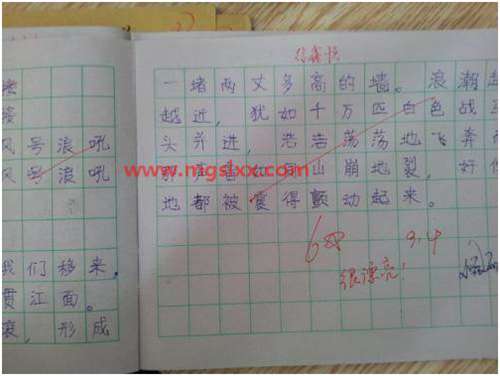 风号浪吼
风号浪吼
我们移来。
贯江面。
形成
一堵两丈多高的墙。浪潮越
越近，犹如千万匹白色战
头并进，浩浩荡荡地飞奔
www.mgslxx.com
那声音如同山崩地裂，好
地都被震得颤动起来。
9.4
很漂亮！